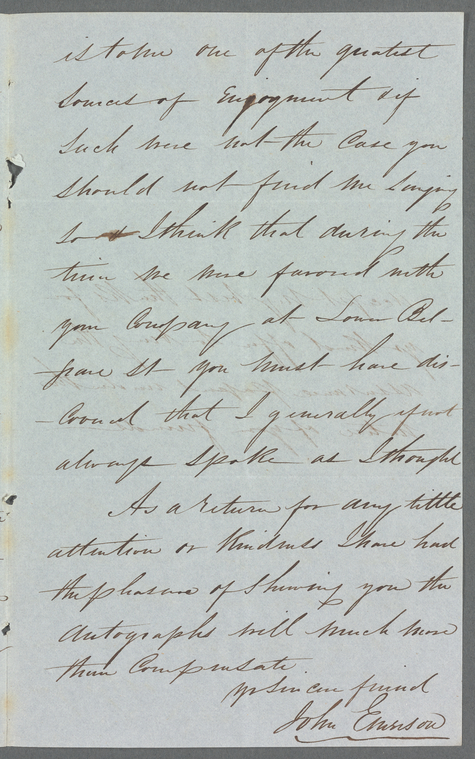 is to me one of the greatest
sources of Enjoyment & if
Such were not the Case you
should not find me Saying
so I think that during the
time we were favored with
your Company at Lower Bel-
grave St you must have dis-
-covered that I generally if not
always spoke as I thought
As a return for any little
attention or Kindness I have had
the pleasure of Shewing you the
Autographs will much more
than Compensate
yr Sincere friend
John Emerson